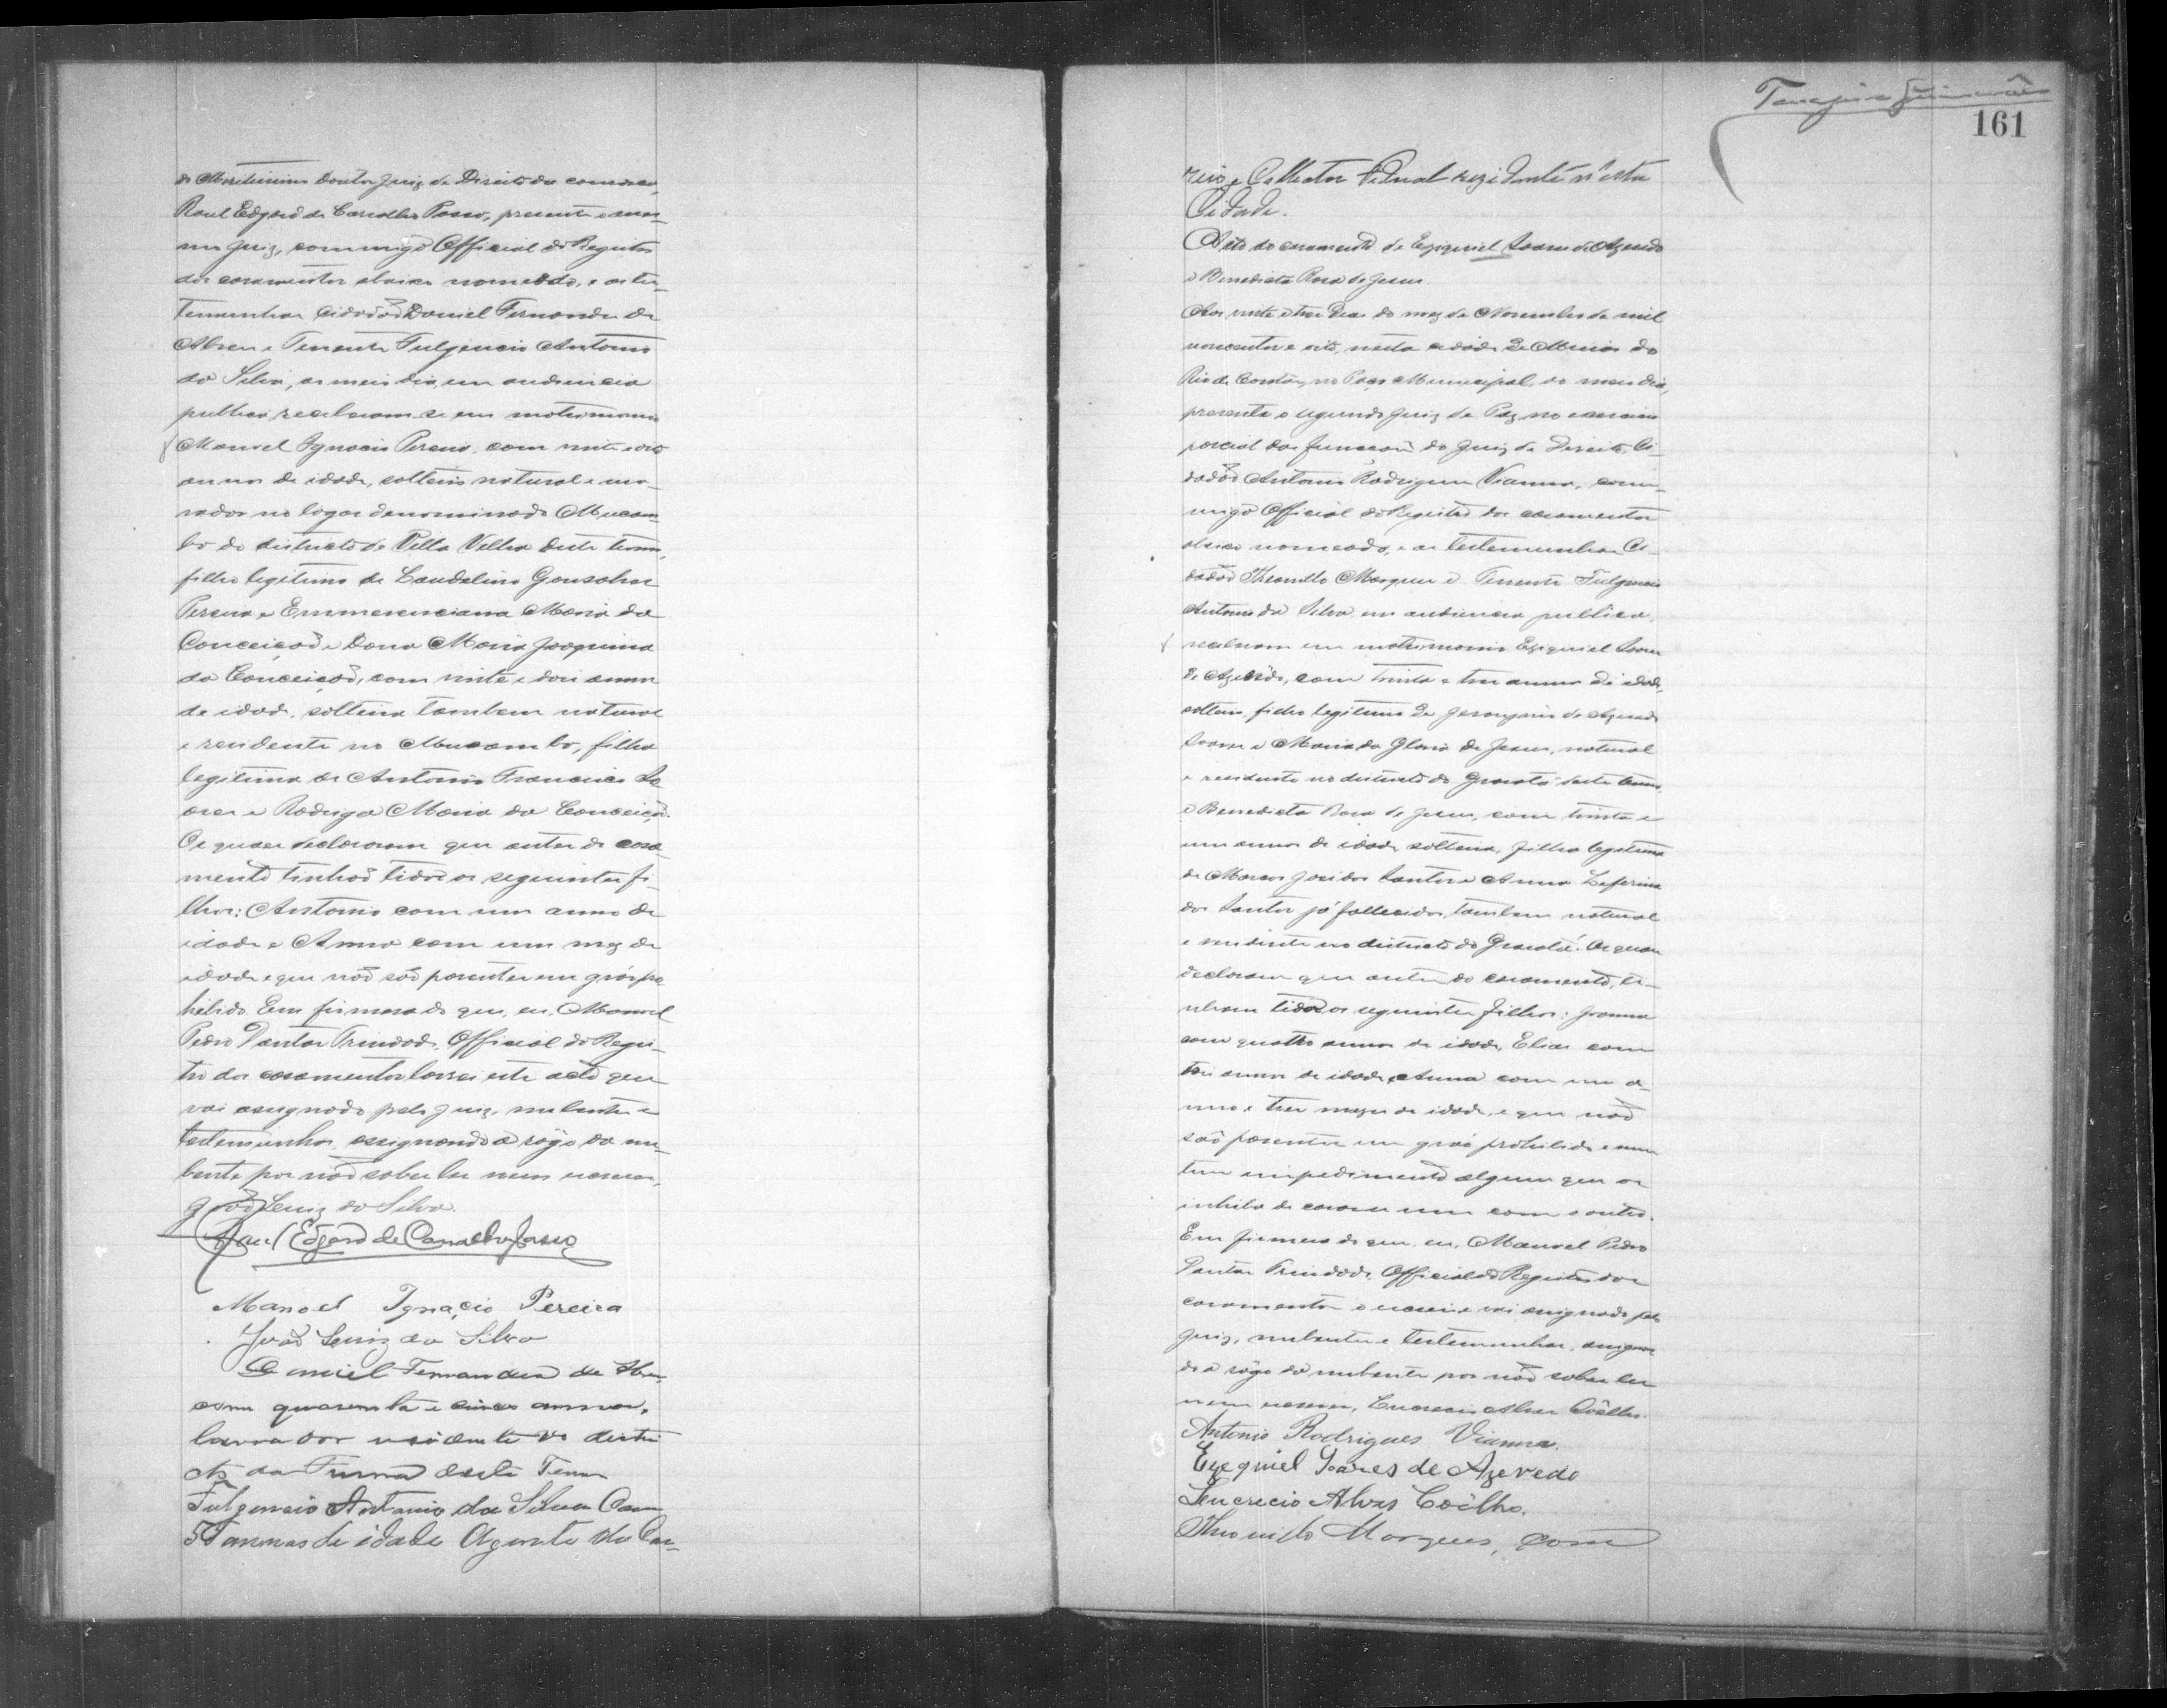 do Meritissimo Doutor Juiz de Direito da comarca,
Raul Edgard de Carvalho Passo, presente o mes-
mo Juiz, commigo Official do Registro
dos casamentos abaixo nomeado, e as tes-
temunhas Cidadão Daniel Fernandes de
Abreu e Tenente Fulgencio Antonio
da Silva, ao meio dia, em audiencia
publica receberam-se em matrimonio
Manoel Ignacio Pereira, com vinte e oito
annos de idade, solteiro natural e mo-
rador no logar denominado Mucam-
bo do districto de Villa Velha deste termo,
filho legitimo de Laudelino Gonsalves
Pereira e Emmerenciana Maria da
Conceição e Dona Maria Joaquina
da Conceição, com vinte e dois annos
de idade, solteira tambem natural
e residente no Mucambo, filha
legitima de Antonio Francisco So
ares e Rodriga Maria da Conceição.
Os quaes declararam que antes do casa
mento tinhão tidos os seguintes fi-
lhos: Antonio com um anno de
idade e Anna com um mez de
idade e que não são parentes em gráo pro
hibido. Em firmesa do que, eu, Manoel
Pedro Dantas Trindade, Official do Regis-
tro dos casamentos lavrei este acto que
vai assignado pelo Juiz, nubentes e
testemunhas, assignando a rôgo da nu-
bente por não saber ler nem escrever,
João Luiz da Silva.
Raul Edgard de Carvalho Passo
Manoel Ignaçio Pereira
João Luiz da Silva
Daniel Fernandes de Abreu,
com quarenta e cinco annos,
lavrador residente no distri
cto da Furna deste Termo
Fulgencio Antonio da Silva Com
50 annos de idade Agente do Cor-
161
reio e Collector Federal rezidente n'esta
Cidade.
Acto do casamento de Ezequiel Soares de Azevedo
e Benedicta Rosa de Jesus.
Aos vinte e tres dias do mez de Novembro de mil
novecentos e oito, nesta cidade de Minas do
Rio de Contas, no Paço Municipal, ao meio dia,
presente o segundo Juiz de Paz no exercicio
parcial das funcções do Juiz de Direito, Ci-
dadão Antonio Rodrigues Vianna, com-
migo Official do Registro dos casamentos
abaixo nomeado, e as testemunhas Ci-
dadão Marques e Tenente Fulgencio
Antonio da Silva, em audiencia publica,
receberam em matrimonio Ezequiel Soares
de Azevedo, com trinta e tres annos de idade,
solteiro, filho legitimo de de Azevedo
Soares e Maria da Gloria de Jesus, natural
e residente no districto do Gravatá deste termo,
e Benedicta Rosa de Jesus, com trinta e
um annos de idade, solteira, filha legitima
de Marcos José dos Santos e Anna Zeferina
dos Santos já fallecidos, tambem natural
e residente no districto do Gravatá. Os quaes
declaram que antes do casamento, ti-
nham tidos os seguintes filhos: Joanna
com quatro annos de idade, Elias com
tres annos de idade, e Anna com um a-
nno e tres mezes de idade, e que não
são parentes em gráo prohibido e nem
tem impedimento algum que os
inhiba de casarem um com o outro.
Em firmesa do que, eu, Manoel Pedro
Dantas Trindade, Official do Registro dos
casamentos o escrevi e vai assignado pelo
Juiz, nubentes e testemunhas, assignan
do a rôgo da nubente por não saber ler
nem escrever, Lucrecio Alves Coêlho.
Antonio Rodrigues Vianna.
Ezequiel Soares de Azevedo
Lucrecio Alves Coêlho.
Marques, com